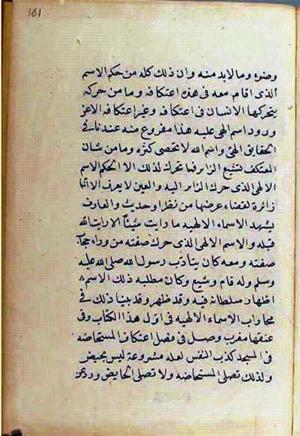 161
وضوء وما لابد منه وان ذلك كله من حكم الاسم
الذى اقام معه فى هذه اعتكافه وما من حركة
يتحركها الانسان فى اعتكافه وغير اعتكافه الا عن
ورود اسم الهى عليه هذا مفروغ منه عندنا فى
الحقائق الهى واسما الله لا تحصى كثرة وما من شان
المعتكف تشييع الزائر فما تحرك لذلك الا لحكم الاسم
الالهى الذى حرك الزائر اليه والعين لا يعرف الا انها
زائرة لقضاء غرضها من نظر او حديث والعارف
يشهد الاسماء الالهية ما رايت شيئا الا رايت الله
قبله والاسم الالهى الذى حرك صفته من وراء حجاب
صفته ومعه كان يتادب رسول الله صلى الله عليه
وسلم وله قام وشيع وكان مطلبه ذلك الاسم
اظهار سلطانه فيه وقد ظهر وقد بينا ذلك فى
محاورات الاسماء الالهية فى اول هذا الكتاب وفى
عنقا مغرب وصل فى فصل اعتكاف المستحاضه
فى المسجد كذب النفس لعلة مشروعة ليس بحيض
ولذلك تصلى المستحاضه ولا تصلى الحايض